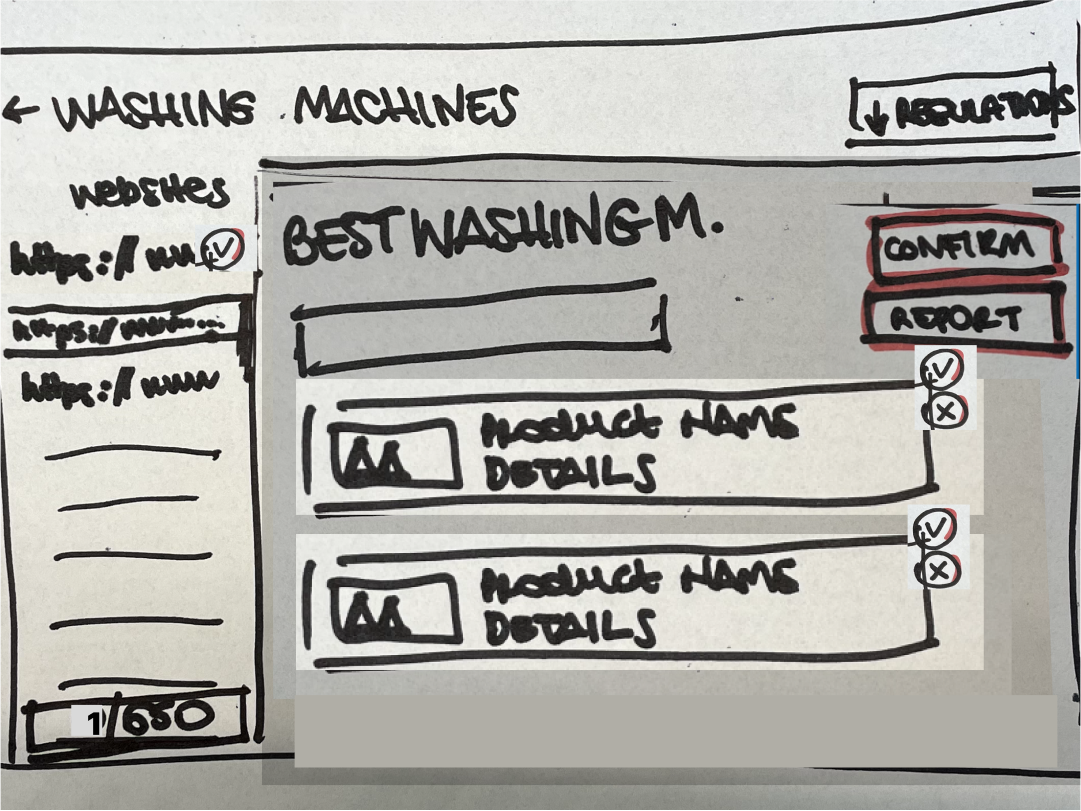 ← WASHING MACHINES
↓ REGULATIONS
Websites
https://www
https://www...
https://www
1/650
BEST WASHING M.
CONFIRM
REPORT
PRODUCT NAME
DETAILS
PRODUCT NAME
DETAILS